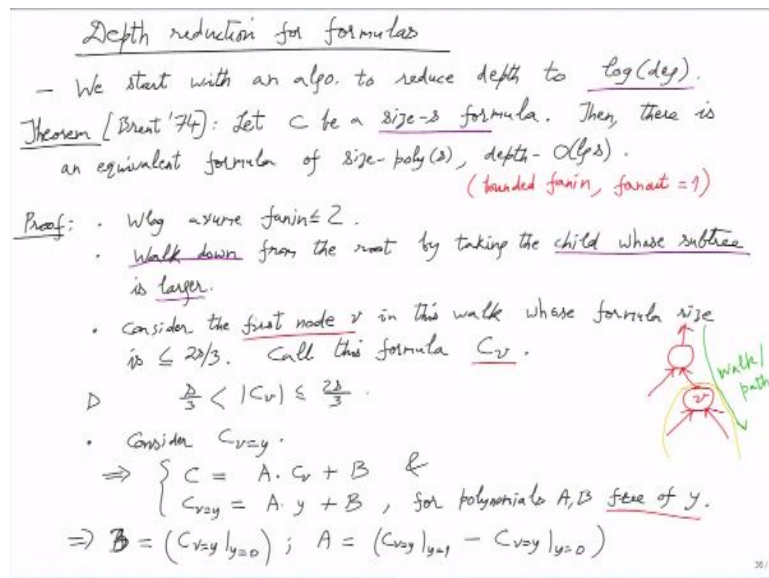 Depth reduction for formulas
- We start with an algo. to reduce depth to log(deg).
Theorem [Brent '74]: Let C be a size-s formula. Then, there is
an equivalent formula of size-poly(s), depth-O(lg s).
(bounded fanin, fanout = 1)
Proof: • Wlog assume fanin ≤ 2.
• Walk down from the root by taking the child whose subtree
is larger.
• Consider the first node v in this walk whose formula size
is ≤ 2s/3. Call this formula C_v.
▷ s/3 < |C_v| ≤ 2s/3.
walk/
path
v
• Consider C_{v=y}.
⇒ { C = A. C_v + B &
C_{v=y} = A. y + B, for polynomials A, B free of y.
⇒ B = (C_{v=y}|_{y=0}) ; A = (C_{v=y}|_{y=1} - C_{v=y}|_{y=0})